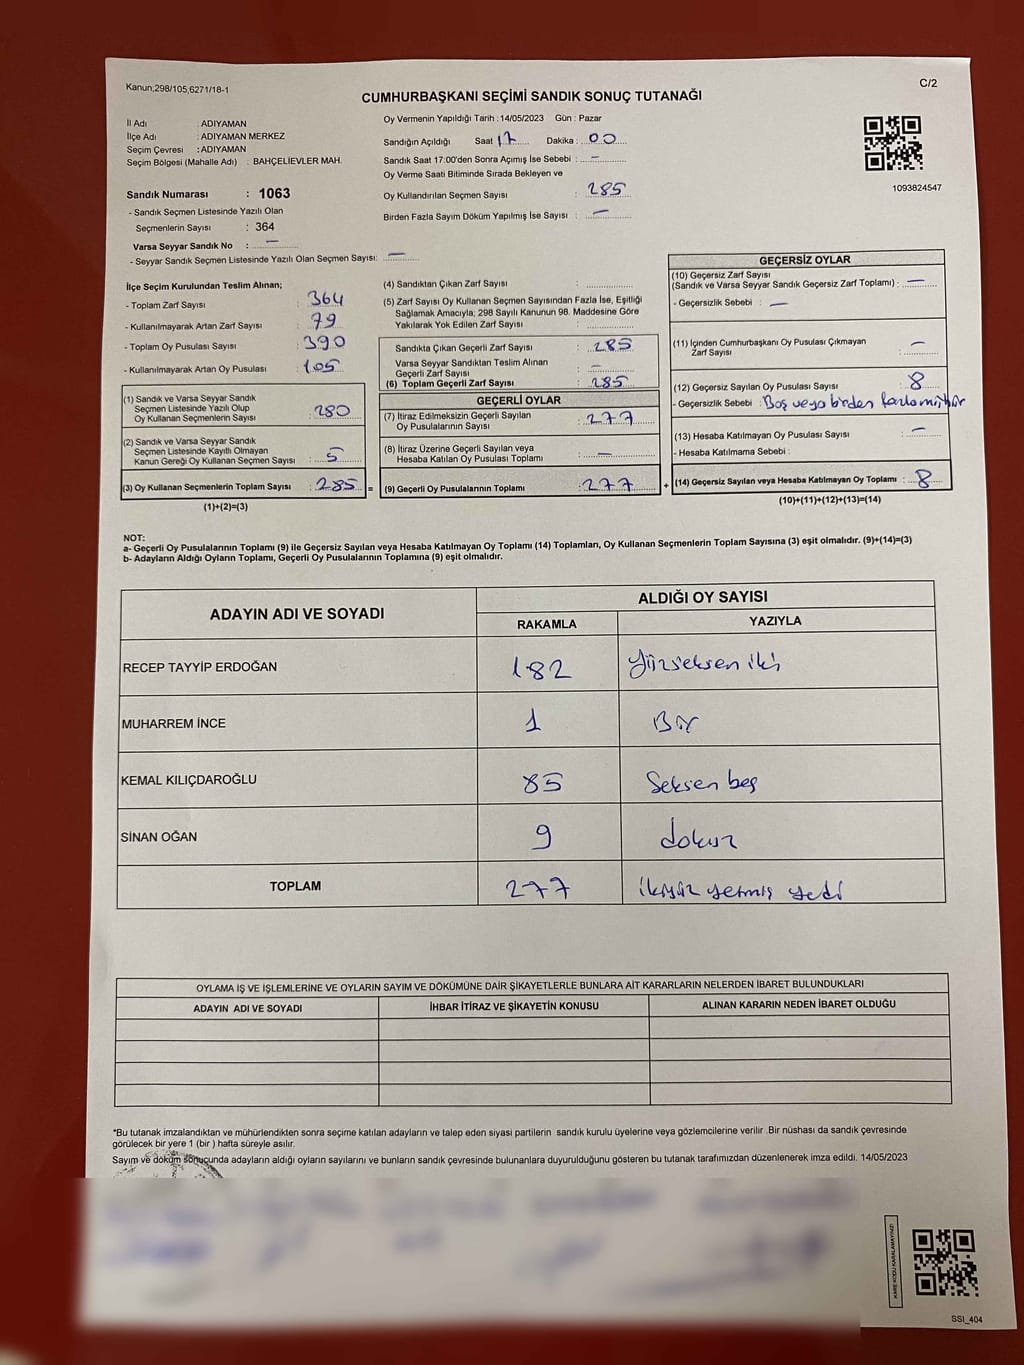 Kanun;298/105;6271/18-1
C/2
CUMHURBAŞKANI SEÇİMİ SANDIK SONUÇ TUTANAĞI
İl Adı : ADIYAMAN
İlçe Adı : ADIYAMAN MERKEZ
Seçim Çevresi : ADIYAMAN
Seçim Bölgesi (Mahalle Adı) : BAHÇELİEVLER MAH.
Sandık Numarası : 1063
- Sandık Seçmen Listesinde Yazılı Olan
Seçmenlerin Sayısı : 364
Varsa Seyyar Sandık No : —
- Seyyar Sandık Seçmen Listesinde Yazılı Olan Seçmen Sayısı: —
Oy Vermenin Yapıldığı Tarih :14/05/2023 Gün : Pazar
Sandığın Açıldığı Saat 17 Dakika : 00
Sandık Saat 17:00'den Sonra Açımış İse Sebebi : —
Oy Verme Saati Bitiminde Sırada Bekleyen ve
Oy Kullandırılan Seçmen Sayısı : 285
Birden Fazla Sayım Döküm Yapılmış İse Sayısı : —
1093824547
İlçe Seçim Kurulundan Teslim Alınan;
- Toplam Zarf Sayısı : 364
- Kullanılmayarak Artan Zarf Sayısı : 79
- Toplam Oy Pusulası Sayısı : 390
- Kullanılmayarak Artan Oy Pusulası : 105
(1) Sandık ve Varsa Seyyar Sandık
Seçmen Listesinde Yazılı Olup
Oy Kullanan Seçmenlerin Sayısı : 280
(2) Sandık ve Varsa Seyyar Sandık
Seçmen Listesinde Kayıtlı Olmayan
Kanun Gereği Oy Kullanan Seçmen Sayısı : 5
(3) Oy Kullanan Seçmenlerin Toplam Sayısı : 285 =
(1)+(2)=(3)
(4) Sandıktan Çıkan Zarf Sayısı :
(5) Zarf Sayısı Oy Kullanan Seçmen Sayısından Fazla İse, Eşitliği
Sağlamak Amacıyla; 298 Sayılı Kanunun 98. Maddesine Göre
Yakılarak Yok Edilen Zarf Sayısı :
Sandıkta Çıkan Geçerli Zarf Sayısı : 285
Varsa Seyyar Sandıktan Teslim Alınan
Geçerli Zarf Sayısı : —
(6) Toplam Geçerli Zarf Sayısı : 285
GEÇERLİ OYLAR
(7) İtiraz Edilmeksizin Geçerli Sayılan
Oy Pusulalarının Sayısı : 277
(8) İtiraz Üzerine Geçerli Sayılan veya
Hesaba Katılan Oy Pusulası Toplamı : —
(9) Geçerli Oy Pusulalarının Toplamı : 277 +
GEÇERSİZ OYLAR
(10) Geçersiz Zarf Sayısı
(Sandık ve Varsa Seyyar Sandık Geçersiz Zarf Toplamı) : —
- Geçersizlik Sebebi : —
(11) İçinden Cumhurbaşkanı Oy Pusulası Çıkmayan
Zarf Sayısı : —
(12) Geçersiz Sayılan Oy Pusulası Sayısı : 8
- Geçersizlik Sebebi : Boş veya birden fazla
(13) Hesaba Katılmayan Oy Pusulası Sayısı : —
- Hesaba Katılmama Sebebi :
(14) Geçersiz Sayılan veya Hesaba Katılmayan Oy Toplamı : 8
(10)+(11)+(12)+(13)=(14)
NOT:
a- Geçerli Oy Pusulalarının Toplamı (9) ile Geçersiz Sayılan veya Hesaba Katılmayan Oy Toplamı (14) Toplamları, Oy Kullanan Seçmenlerin Toplam Sayısına (3) eşit olmalıdır. (9)+(14)=(3)
b- Adayların Aldığı Oyların Toplamı, Geçerli Oy Pusulalarının Toplamına (9) eşit olmalıdır.
ADAYIN ADI VE SOYADI
ALDIĞI OY SAYISI
RAKAMLA YAZIYLA
RECEP TAYYİP ERDOĞAN 182 Yüzseksen iki
MUHARREM İNCE 1 Bir
KEMAL KILIÇDAROĞLU 85 Seksen beş
SİNAN OĞAN 9 dokuz
TOPLAM 277 ikiyüz yetmiş yedi
OYLAMA İŞ VE İŞLEMLERİNE VE OYLARIN SAYIM VE DÖKÜMÜNE DAİR ŞİKAYETLERLE BUNLARA AİT KARARLARIN NELERDEN İBARET BULUNDUKLARI
ADAYIN ADI VE SOYADI İHBAR İTİRAZ VE ŞİKAYETİN KONUSU ALINAN KARARIN NEDEN İBARET OLDUĞU
*Bu tutanak imzalandıktan ve mühürlendikten sonra seçime katılan adayların ve talep eden siyasi partilerin sandık kurulu üyelerine veya gözlemcilerine verilir .Bir nüshası da sandık çevresinde
görülecek bir yere 1 (bir ) hafta süreyle asılır.
Sayım ve döküm sonucunda adayların aldığı oyların sayılarını ve bunların sandık çevresinde bulunanlara duyurulduğunu gösteren bu tutanak tarafımızdan düzenlenerek imza edildi. 14/05/2023
KARE KODU KARALAMAYINIZ!
SSI_404